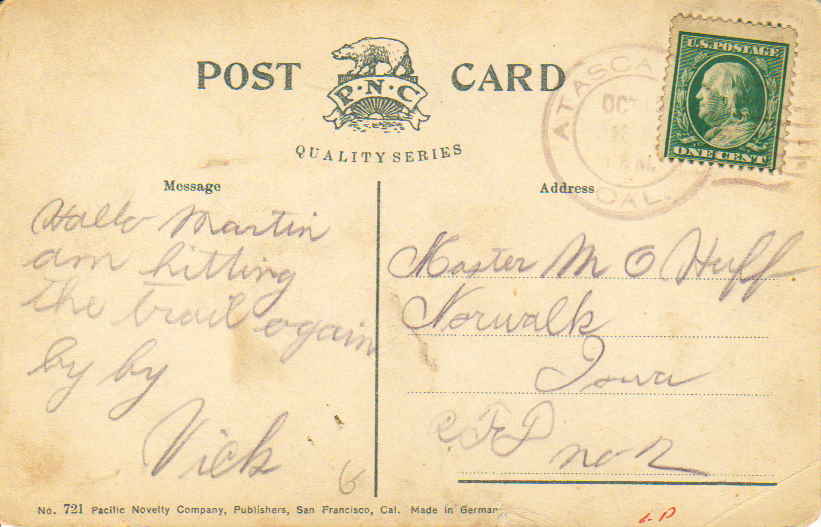 POST CARD
P·N·C
QUALITY SERIES
U.S. POSTAGE
ONE CENT
ATASCA
OCT
CAL.
Message
Address
Hallo Martin
am hitting
the trail again
by by
Vick
Master M O Huff
Norwalk
Iowa
RFD
no 2
6
No. 721 Pacific Novelty Company, Publishers, San Francisco, Cal. Made in German